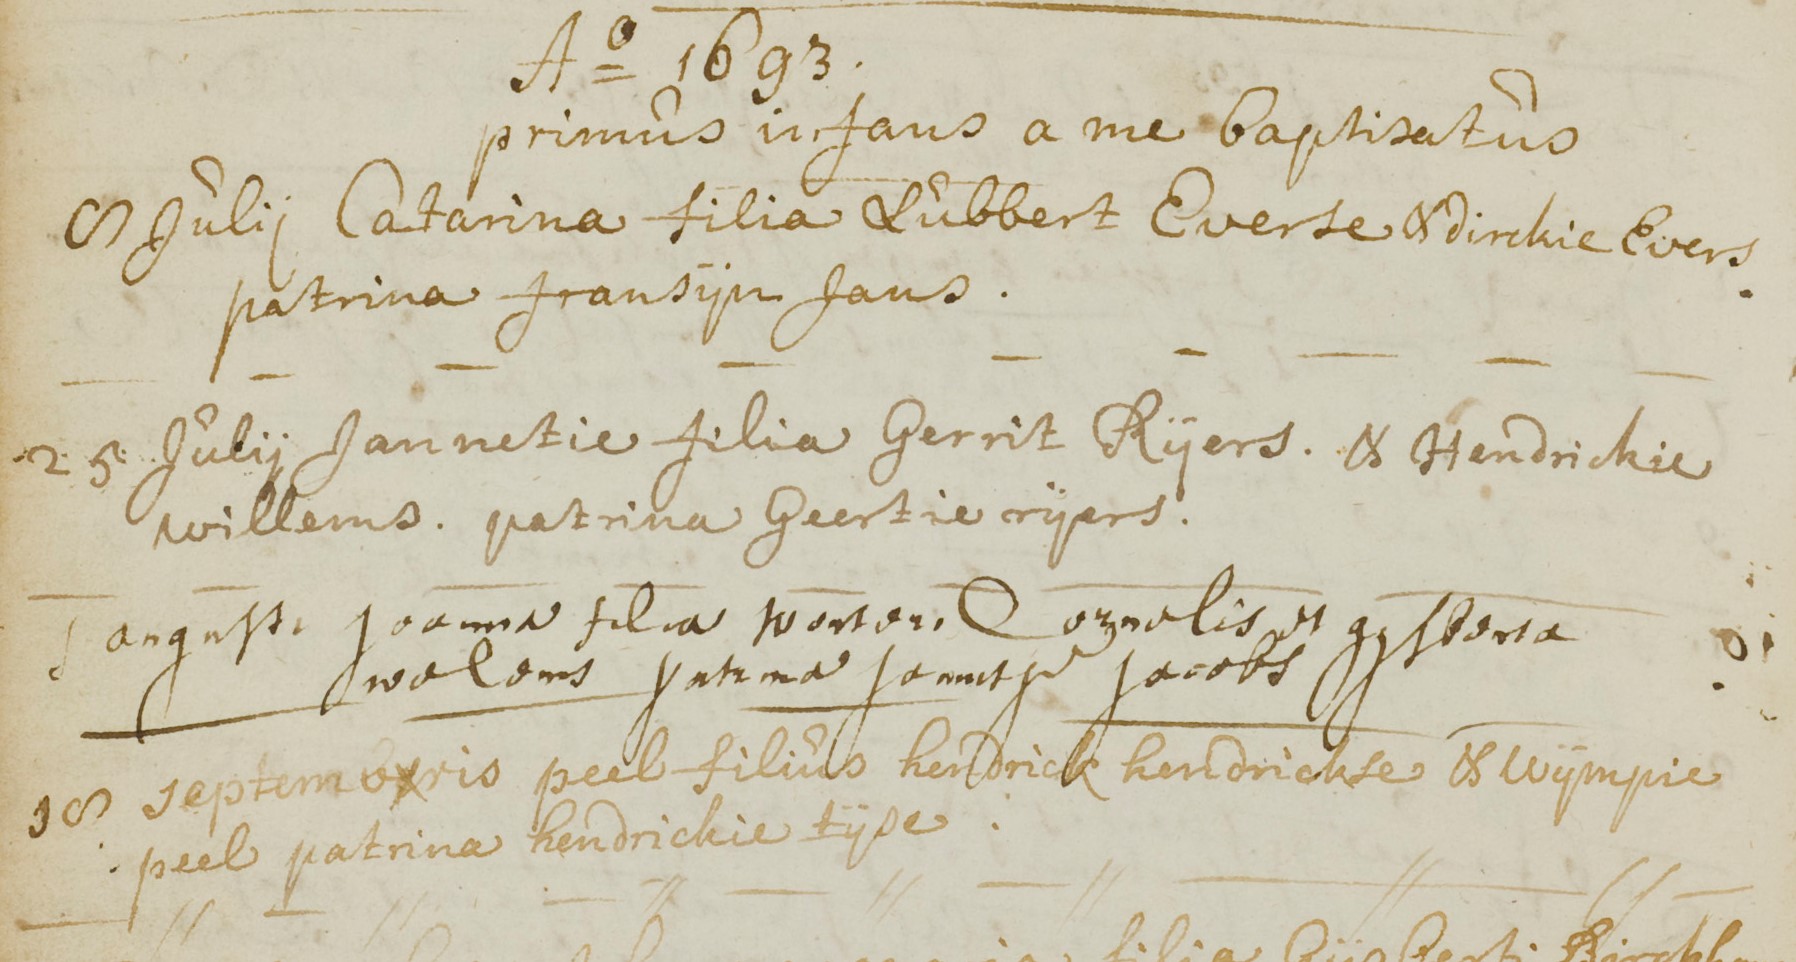 A° 1693.
primus infans a me baptisatus
8 Julij Catarina filia Lubbert Everse & dirckie Evers.
patrina fransijn Jans.
25 Julij Jannetie filia Gerrit Rÿers. & Hendrickie
willems. patrina Geertie rÿers.
augusti joanna filia wouter Cornelis et gysberta
welems patrina jannitje jacobs
18 septembris peel filius hendrick hendrickse & wÿmpie
peel patrina hendrickie tÿse
filia Gijsberti